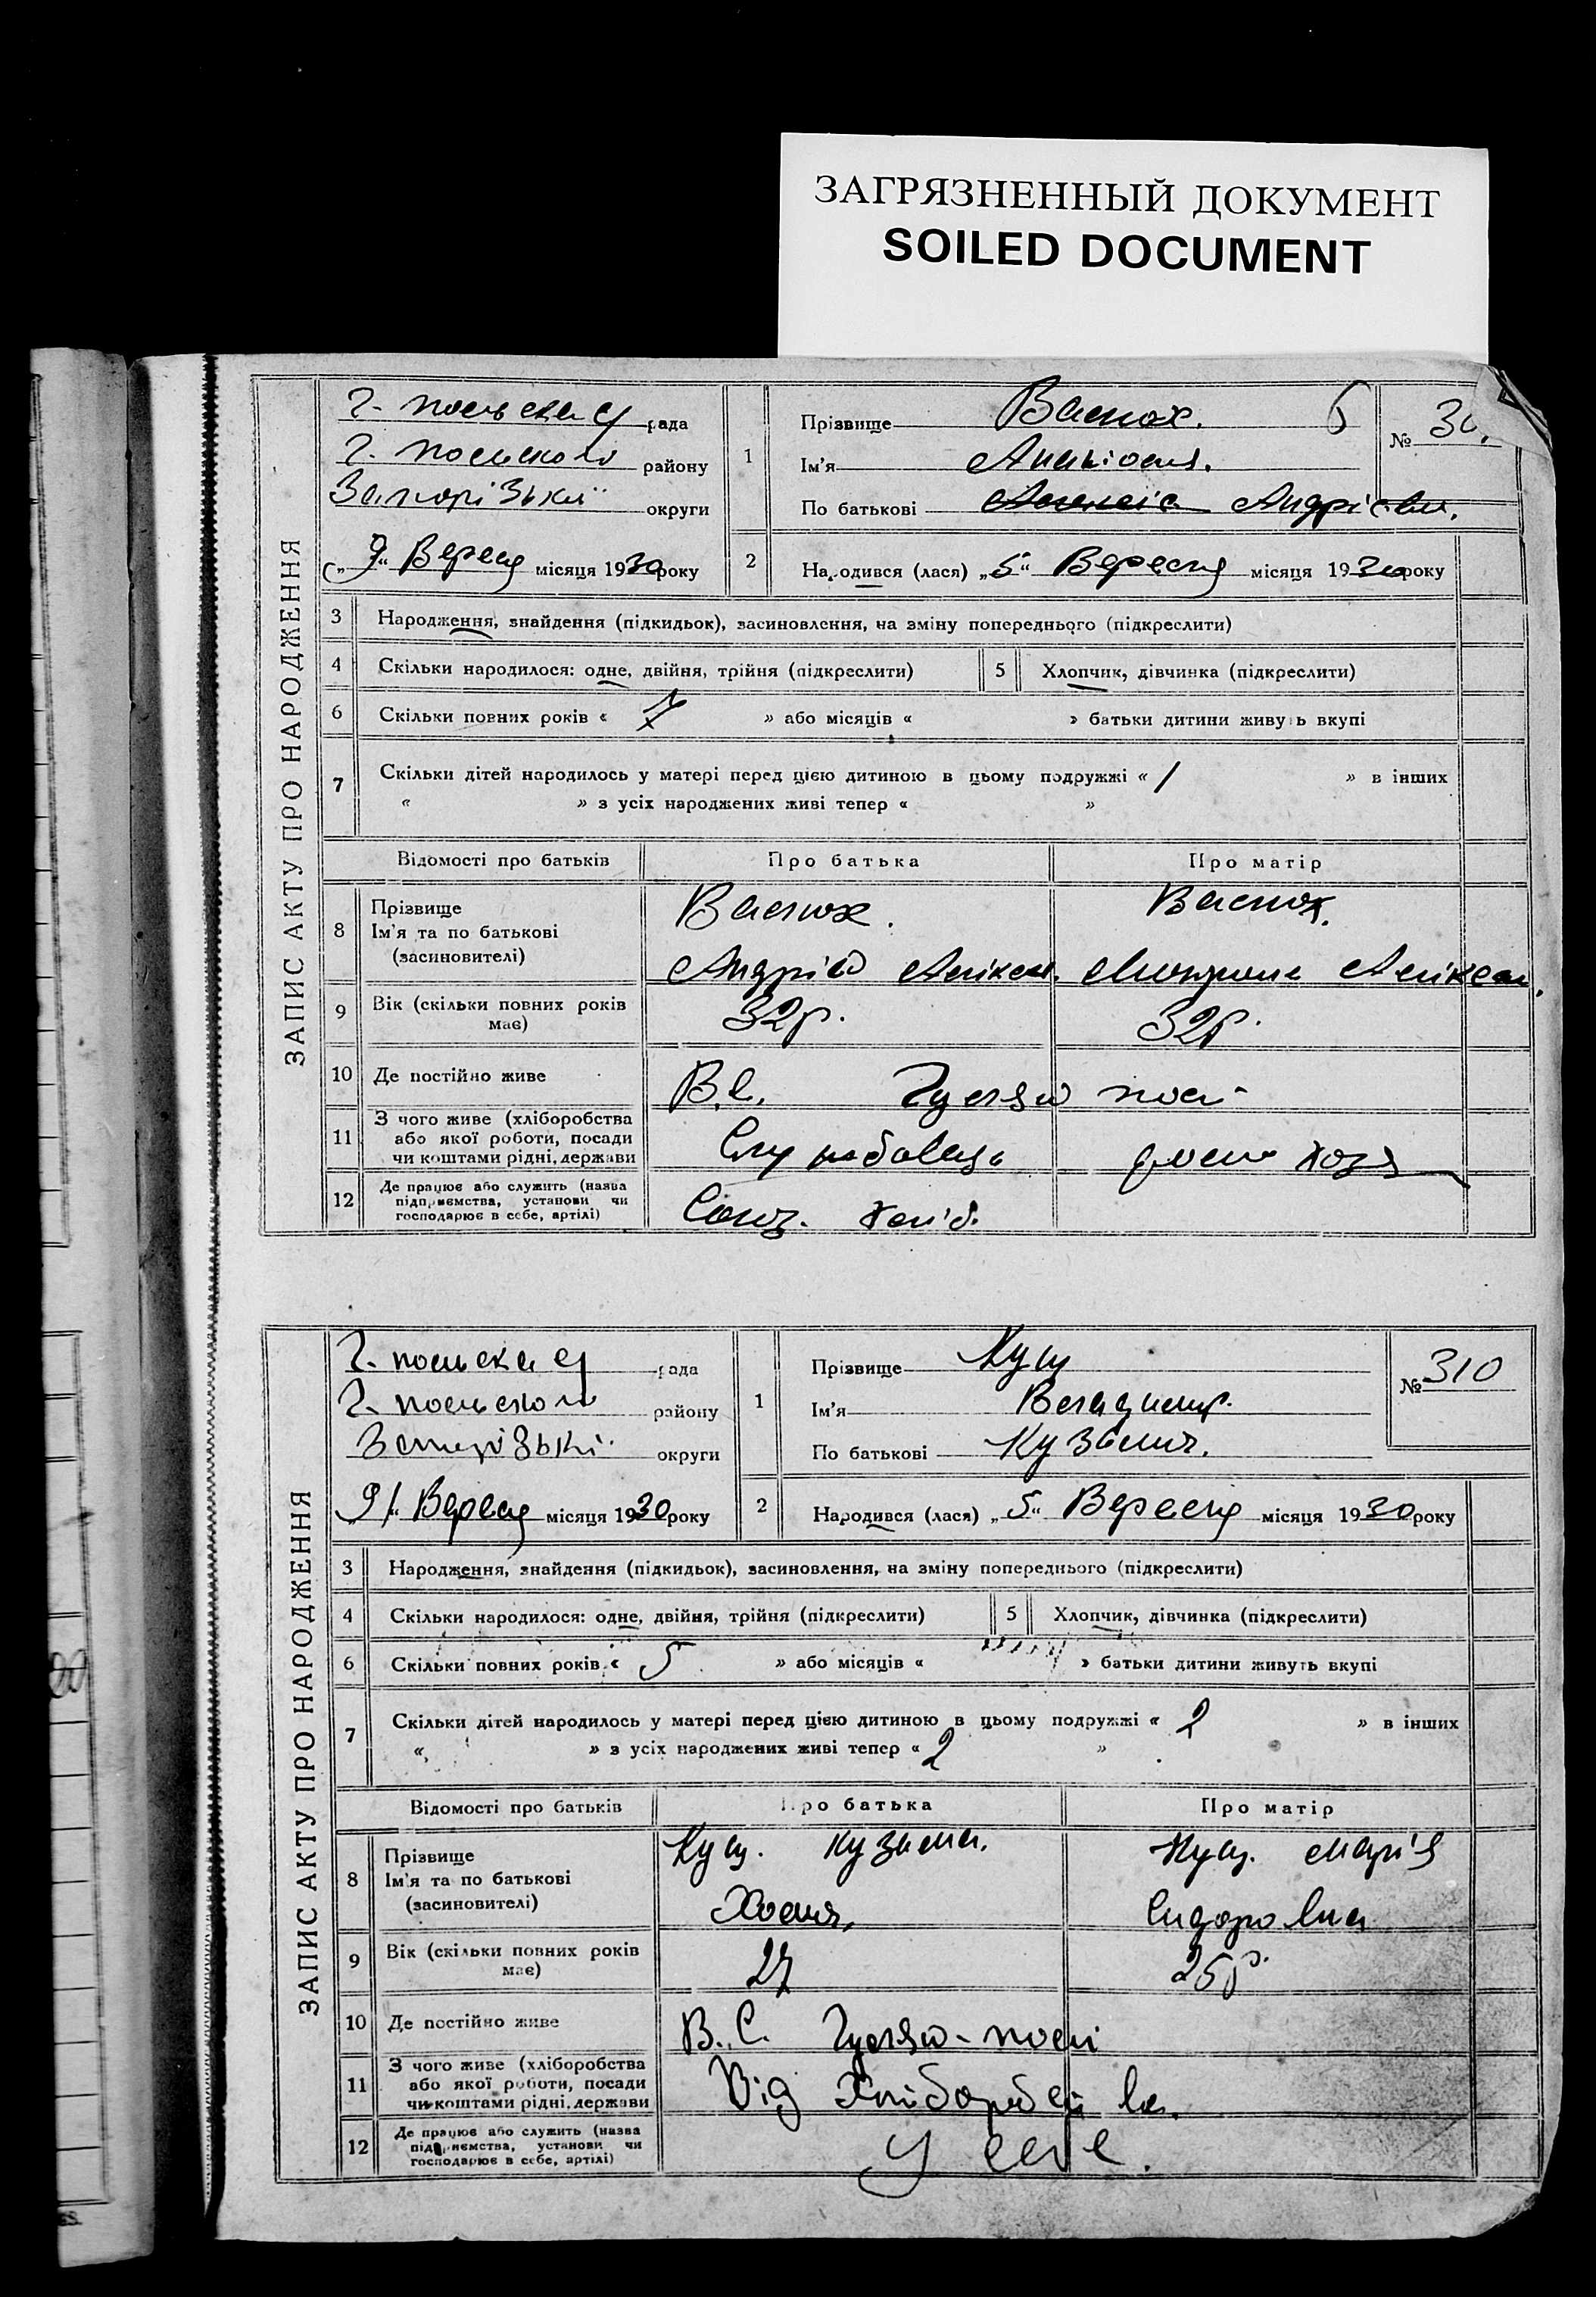 ЗАГРЯЗНЕННЫЙ ДОКУМЕНТ
SOILED DOCUMENT
ЗАПИС АКТУ ПРО НАРОДЖЕННЯ
рада
району
округи
„9“ Вересня місяця 1930 року
1
Прізвище
Ім'я
По батькові
№ 30
2 Народився (лася) „5“ Вересня місяця 1930 року
3 Народження, знайдення (підкидьок), засиновлення, на зміну попереднього (підкреслити)
4 Скільки народилося: одне, двійня, трійня (підкреслити) 5 Хлопчик, дівчинка (підкреслити)
6 Скільки повних років « 7 » або місяців « » батьки дитини живуть вкупі
7 Скільки дітей народилось у матері перед цією дитиною в цьому подружжі « 1 » в інших
« » з усіх народжених живі тепер « »
Відомості про батьків Про батька Про матір
8 Прізвище
Ім'я та по батькові
(засиновителі)
Андрій
9 Вік (скільки повних років
має) 32р. 32р.
10 Де постійно живе В.С. Гуляй пол
11 З чого живе (хліборобства
або якої роботи, посади
чи коштами рідні, держави
Службовець
12 Де працює або служить (назва
підприємства, установи чи
господарює в себе, артілі)
ЗАПИС АКТУ ПРО НАРОДЖЕННЯ
рада
району
округи
Вересня місяця 1930 року
1
Прізвище Кущ
Ім'я Владимир.
По батькові Кузьмич.
№ 310
2 Народився (лася) „5“ Вересня місяця 1930 року
3 Народження, знайдення (підкидьок), засиновлення, на зміну попереднього (підкреслити)
4 Скільки народилося: одне, двійня, трійня (підкреслити) 5 Хлопчик, дівчинка (підкреслити)
6 Скільки повних років « 5 » або місяців « » батьки дитини живуть вкупі
7 Скільки дітей народилось у матері перед цією дитиною в цьому подружжі « 2 » в інших
« » з усіх народжених живі тепер « 2 »
Відомості про батьків Про батька Про матір
8 Прізвище
Ім'я та по батькові
(засиновителі)
Кущ. Кузьма. Кущ. Марія
Сидоровна
9 Вік (скільки повних років
має) 27 25р.
10 Де постійно живе В.С. Гуляй-пол
11 З чого живе (хліборобства
або якої роботи, посади
чи коштами рідні, держави
Від
12 Де працює або служить (назва
підприємства, установи чи
господарює в себе, артілі)
У себе.